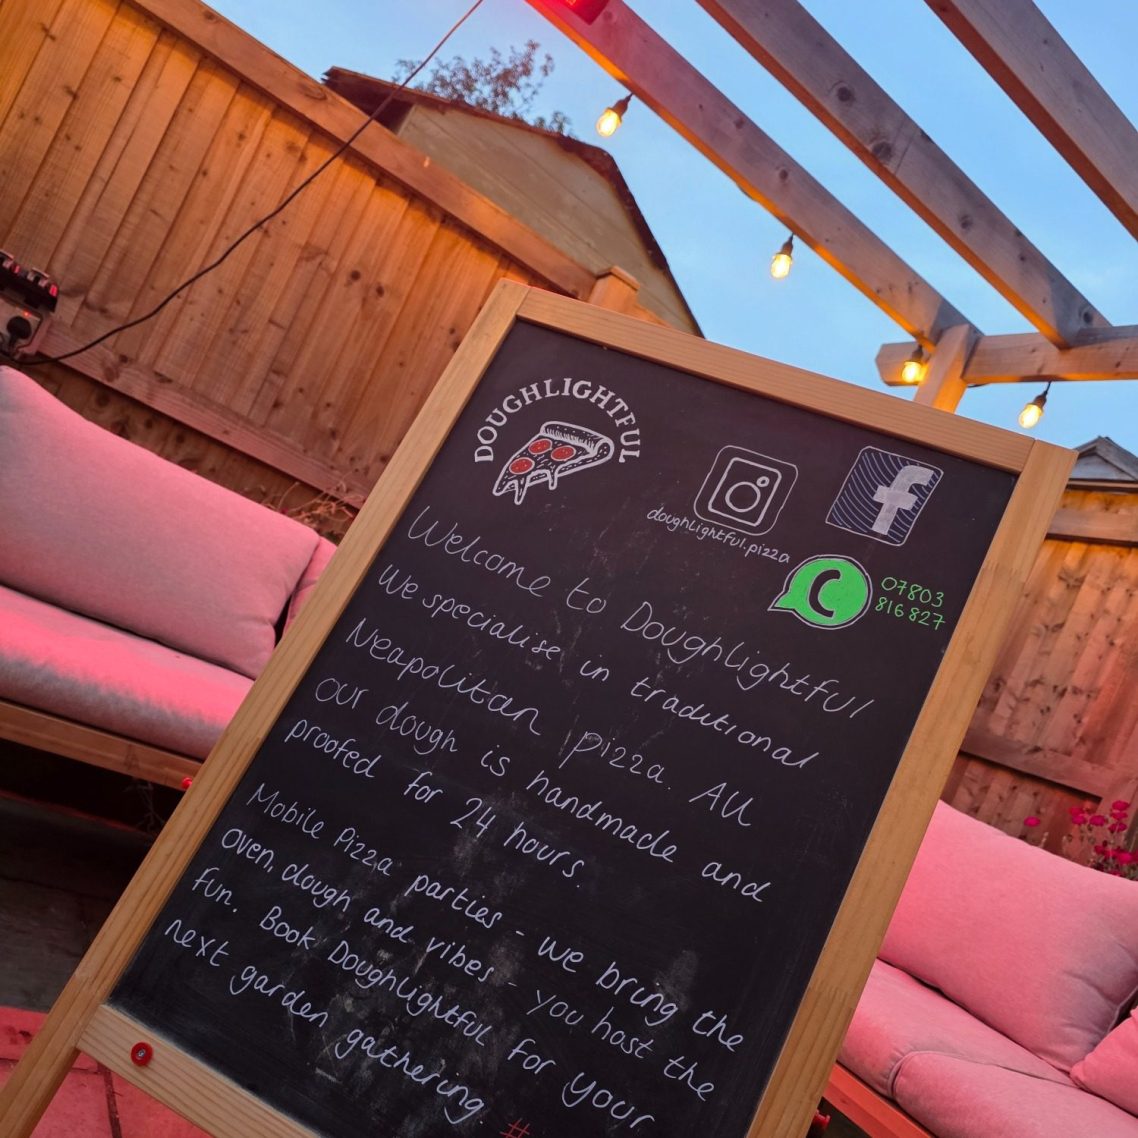 DOUGHLIGHTFUL
doughlightful.pizza
07803
816827
Welcome to Doughlightful
We specialise in traditional
Neapolitan pizza. All
our dough is handmade and
proofed for 24 hours.
Mobile Pizza parties - we bring the
oven, dough and vibes - you host the
fun. Book Doughlightful for your
next garden gathering.
#